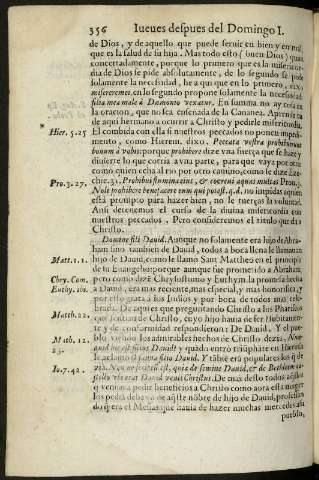 356 Iueves despues del Domingo I.
de Dios, y de aquello que puede seruir en bien y en mi,
que es la salud de su hija. Mas todo esto (buen Dios) quan
concertadamente, porque lo primero que es la misericor-
dia de Dios se pide absolutamente, de lo segundo se pide
solamente la necessidad, he a qui que en lo primero, dixo,
miserere mei. en lo segundo propone solamente la necessidad.
filia mea male à Dæmonio vexatur. En summa no ay
la oracion, que no sea enseñada de la Cananea. Aprende
de aqui hermano a ocurrir a Christo y pedirle misericordia,
Hier. 5. 25
El combida con ella si nuestros peccados no ponen impedi-
mento, como Hierem. dixo. Peccata vestra prohibuerunt
bonum à vobis: porque prohibere dize vna fuerça que se haze y
diuierte lo que corria a vna parte, para que vaya por otra
como quien echa al rio por otro camino, como le dize Eze-
chie. 31. Prohibui flumina eius, & coercui aquas multas Prou.3.
Pro. 3. 27.
Noli prohibere benefacere eum qui potest. q. d. no impidas aquien
está promptio para hazer bien, no le tuerças la voluntad.
Ansi detenemos el curso de la diuina misericordia con
nuestros peccados. Pero consideremos el titulo que da a
Christo.
Domine fili Dauid. Aunque no solamente era hijo de Abra-
ham sino tambien de Dauid, todos a boca llena le llamauan
Matt. 1. 1.
hijo de Dauid, como le llamo Sant Mattheo en el principio
de su Euangelio: porque aunque fue prometido a Abraham,
Chry. Com.
pero como dize Chrysostomo y Euthym. la promessa hecha
Euthy. ibi.
a Dauid, era mas reciente, mas especial, y mas honorifica, y
por esto grata a los Iudios y por boca de todos mas cele-
brada. De aqui es que preguntando Christo a los Phariseos
Matth. 22.
que sentian de Christo, cuyo hijo hauia de ser? subitamen-
te y de conformidad respondieron: De Dauid. Y el pue-
Matth. 12.
blo viendo los admirables hechos de Christo dezia. Nun-
23.
quid hic est filius Dauid? y quãdo entrò triũphãte en Hierusalẽ
le aclamo Hosanna filio Dauid. Y tãbiẽ erã populares los q̃ de-
Io. 7. 42.
zia. Non ne scriptũ est, quia de semine Dauid, & de Bethleem ca-
stello vbi erat Dauid venit Christus. De mas desto todos
q̃ ventura pedir beneficios a Christo como aora esta
los pedia debaxo de aq̃ste nõbre de hijo de Dauid,
do q̃ era el Mesias que hauia de hazer muchas mercedes a su
pueblo,